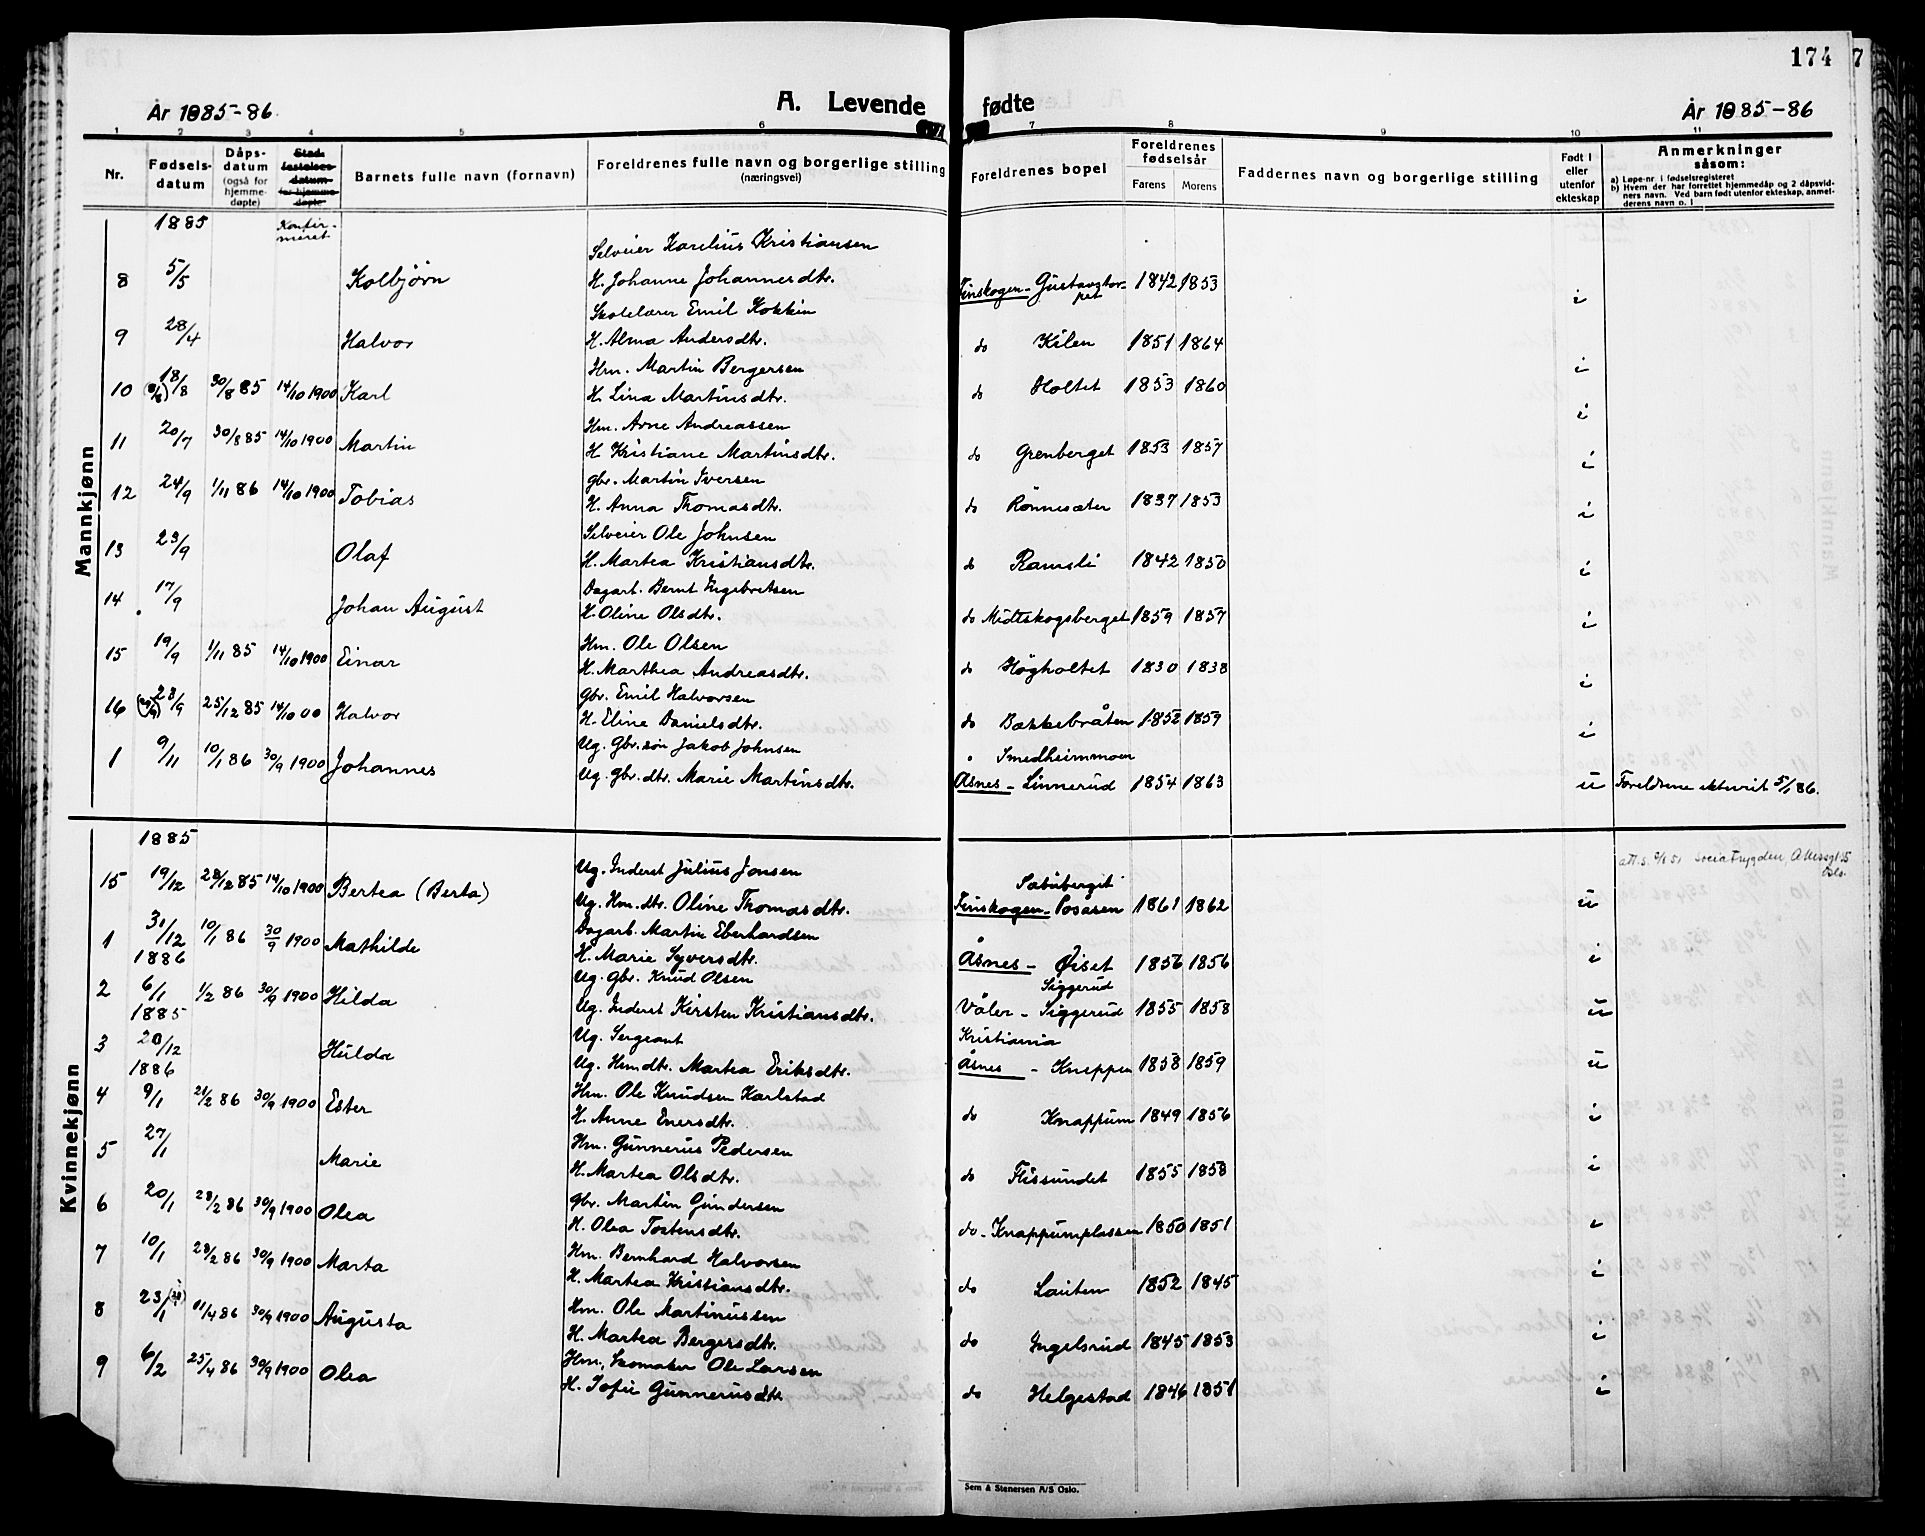 174 7
År 1885-86. A. Levende fødte År 1885-86
1 2 3 4 5 6 7 8 9 10 11
Nr. Fødsels-datum Dåps-datum (også for hjemme-døpte) Stad-festelses-datum for hjemme-døpte Barnets fulle navn (fornavn) Foreldrenes fulle navn og borgerlige stilling (næringsvei) Foreldrenes bopel Foreldrenes fødselsår Farens Morens Faddernes navn og borgerlige stilling Født i eller utenfor ekteskap Anmerkninger såsom:
a) Løpe-nr. i fødselsregisteret
b) Hvem der har forrettet hjemmedåp og 2 dåpsvid-
ners navn. Ved barn født utenfor ekteskap, anmel-
derens navn o. l.
Mannkjønn
1885 Konfir-meret
Selveier Karelius Kristiansen
8 5/5 Kolbjørn H. Johanne Johannesdtr. Finskogen - Gustavstor-pet 1842 1853 i
Skolelærer Emil Kokkin
9 28/4 Halvor H. Alma Andersdtr. do Kilen 1851 1864 i
Hm. Martin Bergersen
10 18/8 (8/8) 30/8 85 14/10 1900 Karl H. Lina Martinsdtr. do Holtet 1853 1860 i
Hm. Arne Andreassen
11 20/7 30/8 85 14/10 1900 Martin H. Kristiane Martinsdtr. do Grenberget 1853 1857 i
gbr. Martin Iversen
12 24/9 1/11 86 14/10 1900 Tobias H. Anna Thomasdtr. do Rønnesæter 1837 1853 i
Selveier Ole Johnsen
13 23/9 Olaf H. Martea Kristiansdtr. do Ramsli 1842 1850 i
Dagarb. Bernt Ingebretsen
14 17/9 Johan August H. Oline Olsdtr. do Midtskogsberget 1859 1857 i
Hm. Ole Olsen
15 19/9 1/11 85 14/10 1900 Einar H. Marthea Andreasdtr. do Høgholtet 1830 1838 i
Gbr. Emil Halvorsen
16 28/9 (29/9) 25/12 85 14/10 00 Halvor H. Eline Danielsdtr. do Bækkebråten 1852 1859 i
Ug. Gbr.søn Jakob Johnsen Smedheimmoen
1 9/11 10/1 86 30/9 1900 Johannes Ug. gbr. dtr. Marie Martinsdtr. Åsnes - Linnerud 1854 1863 u Foreldrene ekteviet 5/1 86.
Kvinnekjønn
1885
Ug. Inderst Julius Jonsen Sætuberget
15 19/12 28/12 85 14/10 1900 Bertea (Berta) Ug. Hm. dtr. Oline Thomasdtr. Finskogen - Posåsen 1861 1862 u
Dagarb. Martin Eberhardsen
1 31/12 10/1 86 30/9 1900 Mathilde H. Marie Syversdtr. Åsnes - Øiset 1856 1856 i
1886
Ug. Gbr. Knud Olsen Siggerud
2 6/1 1/2 86 30/9 1900 Hilda Ug. Inderst Kirsten Kristiansdtr. Våler - Siggerud 1855 1858 u
1885
Ug. Sergeant Kristiania
3 20/12 Hulda Ug. Hmdtr. Martea Eriksdtr. Åsnes - Kneppen 1858 1859 u
1886
Hm. Ole Knudsen Karlstad
4 9/1 21/2 86 30/9 1900 Ester H. Anne Enersdtr. do Knappum 1849 1856 i
Hm. Gunnerus Pedersen
5 27/1 Marie H. Martea Olsdtr. do Flissundet 1855 1858 i
gbr. Martin Gundersen
6 20/1 28/2 86 30/9 1900 Olea H. Olea Tostensdtr. do - Knappumplassen 1850 1851 i
Hm. Bernhard Halvorsen
7 10/1 28/2 86 30/9 1900 Marta H. Martea Kristiansdtr. do Lauten 1852 1845 i
Hm. Ole Martinussen
8 23/1 11/4 86 30/9 1900 Augusta H. Martea Bergersdtr. do Ingelsrud 1845 1853 i
Hm, Skomaker Ole Larsen
9 6/2 25/4 86 30/9 1900 Olea H. Sofie Gunnerusdtr. do Helgestad 1846 1851 i
Sem & Stenersen A/S Oslo.